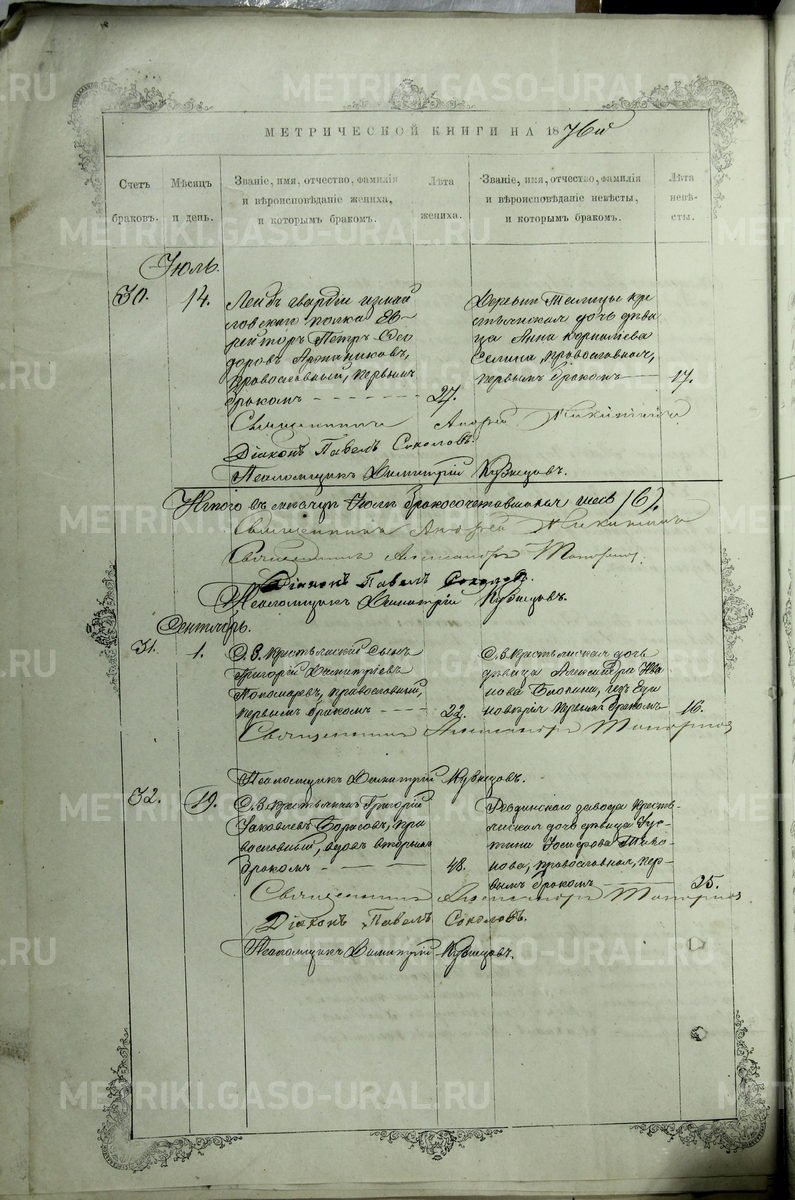 МЕТРИЧЕСКОЙ КНИГИ НА 1876й
Счетъ браковъ.
Мѣсяцъ и день.
Званіе, имя, отчество, фамилія и вѣроисповѣданіе жениха, и которымъ бракомъ.
Лѣта жениха.
Званіе, имя, отчество, фамилія и вѣроисповѣданіе невѣсты, и которымъ бракомъ.
Лѣта невѣсты.
Іюль.
30.
14.
Лейбъ гвардіи измай
ловскаго полка Еф-
рейторъ Петръ Ѳео
доровъ
православный, первымъ
бракомъ
27.
Деревни Талицы кре
стьянская дочь дѣви
ца Анна Корнилева
православная,
первымъ бракомъ
17.
Священникъ Андрей Никитинъ
Діаконъ Павелъ Соколовъ.
Псаломщикъ Димитрій Кузнецовъ.
Итого въ мѣсяцѣ Іюлѣ бракосочетавшихся шесть (6).
Священникъ Андрей Никитинъ
Священникъ Александръ Топорковъ.
Діаконъ Павелъ Соколовъ.
Псаломщикъ Димитрій Кузнецовъ.
Сентябрь.
31.
1.
С. З. крестьянскій сынъ
Григорій Димитріевъ
Пономаревъ, православный,
первымъ бракомъ
22.
С. З. крестьянская дочь
дѣвица Александра Ива
нова изъ Еди
новѣрія первымъ бракомъ
16.
Священникъ Александръ Топорковъ
Псаломщикъ Димитрій Кузнецовъ.
32.
19.
С. З. крестьянинъ Григорій
Іаковлевъ Борисовъ, пра
вославный, вдовъ вторымъ
бракомъ
48.
Ревдинскаго завода кресть-
янская дочь дѣвица Іус-
тина Іосифова Тихо-
нова, православная, пер-
вымъ бракомъ
25.
Священникъ Александръ Топорковъ
Діаконъ Павелъ Соколовъ.
Псаломщикъ Димитрій Кузнецовъ.
METRIKI.GASO-URAL.RU